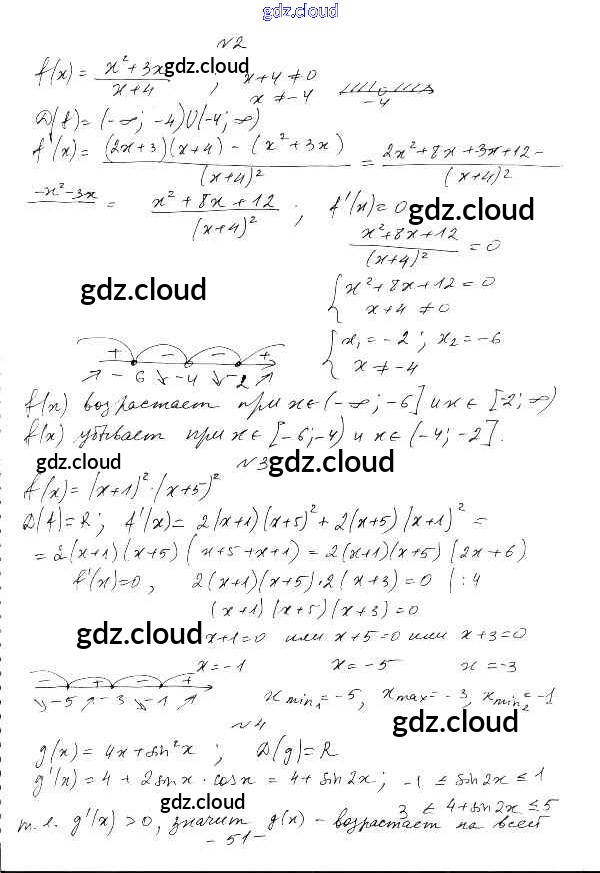 gdz.cloud
№2
f(x) = (x²+3x)/(x+4) ; x+4 ≠ 0
gdz.cloud
x ≠ -4
-4
D(f) = (-∞; -4)∪(-4; ∞)
f'(x) = ((2x+3)(x+4) - (x²+3x))/(x+4)² = (2x²+8x+3x+12-
-x²-3x)/(x+4)² = (x²+8x+12)/(x+4)² ; f'(x)=0
gdz.cloud
(x²+8x+12)/(x+4)² = 0
gdz.cloud
{ x²+8x+12=0
x+4 ≠ 0
{ x₁ = -2 ; x₂ = -6
x ≠ -4
+ - - +
↗ -6 ↘ -4 ↘ -2 ↗
f(x) возрастает при x∈(-∞;-6] и x∈[-2;∞)
f(x) убывает при x∈[-6;-4) и x∈(-4;-2].
gdz.cloud
№3
gdz.cloud
f(x) = (x+1)²·(x+5)²
D(f)=R ; f'(x) = 2(x+1)(x+5)² + 2(x+5)(x+1)² =
= 2(x+1)(x+5)(x+5+x+1) = 2(x+1)(x+5)(2x+6)
f'(x)=0, 2(x+1)(x+5)·2(x+3)=0 |:4
(x+1)(x+5)(x+3)=0
gdz.cloud
x+1=0 или x+5=0 или x+3=0
x=-1 x=-5 x=-3
- + - +
↘ -5 ↗ -3 ↘ -1 ↗
x min₁ = -5, x max = -3, x min₂ = -1
gdz.cloud
№4
g(x) = 4x+sin²x ; D(g)=R
g'(x) = 4 + 2sinx · cosx = 4+sin2x ; -1 ≤ sin2x ≤ 1
gdz.cloud
3 ≤ 4+sin2x ≤ 5
т.е. g'(x) > 0, значит g(x) - возрастает на всей
- 51 -
gdz.cloud